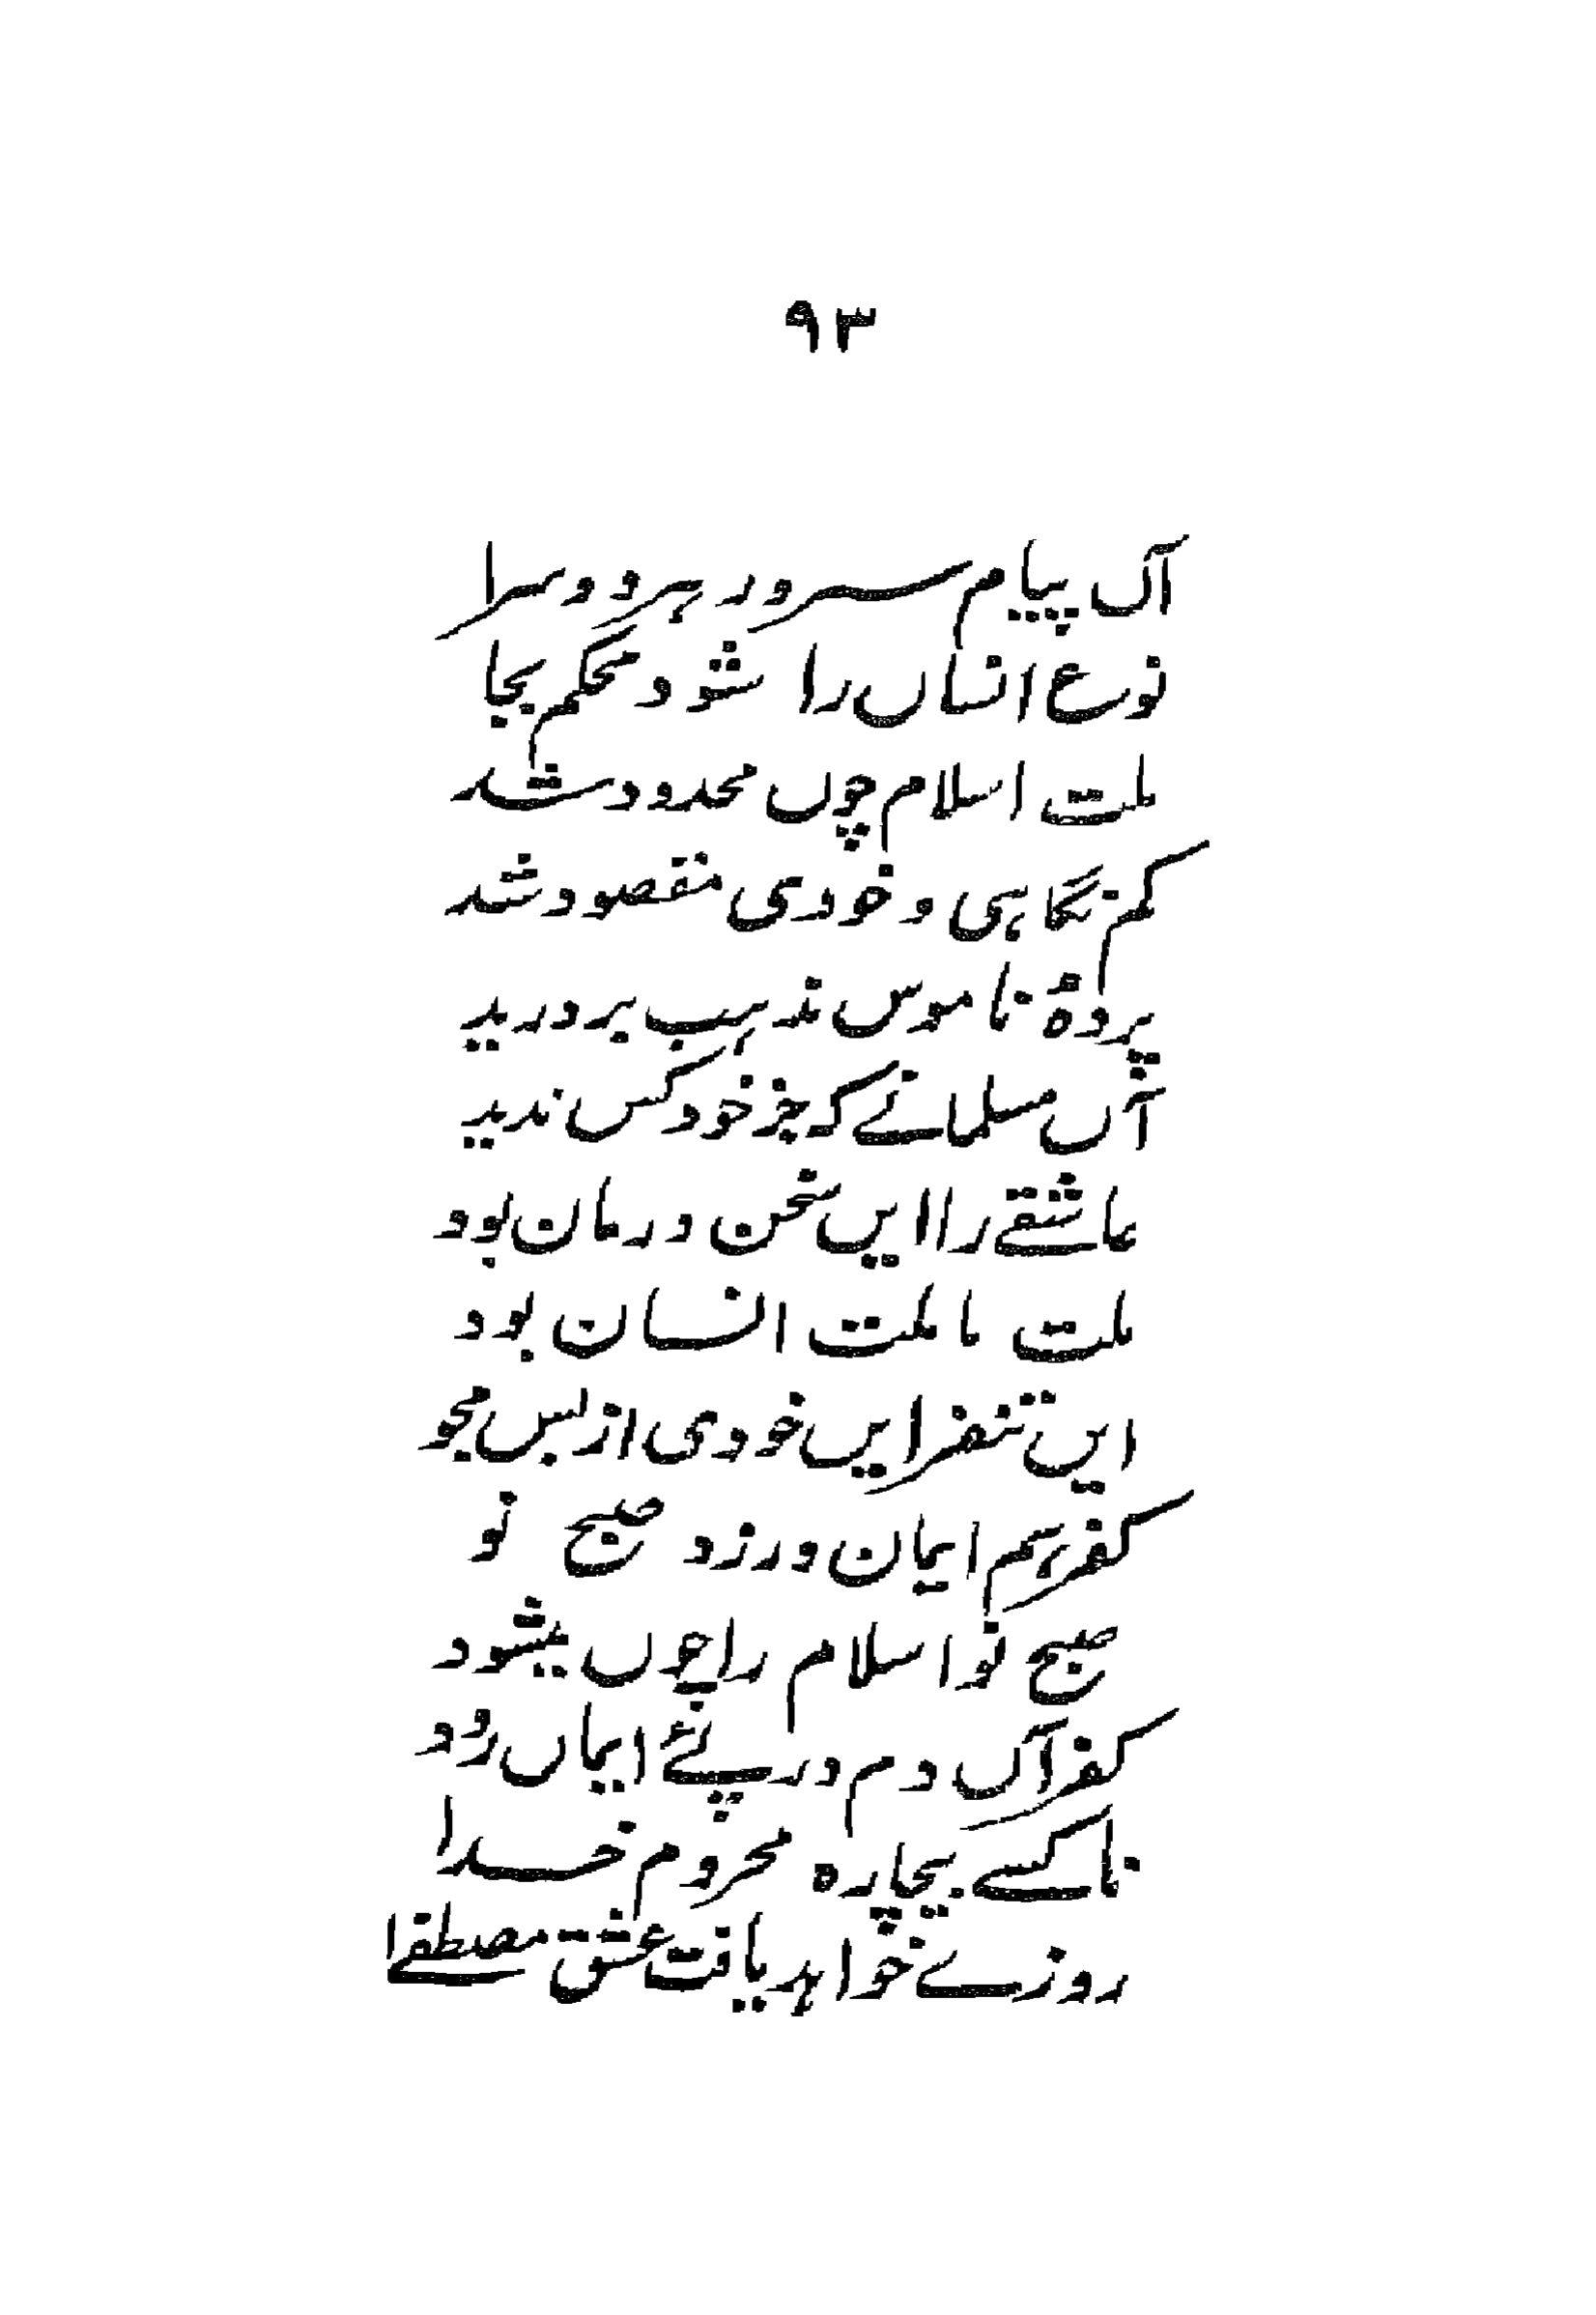 ۹۳
آں پیام سرور ہر دو سرا
نوع انساں را شود محکم بجا
ملت اسلام چوں محدود شد
کم نگاہی و خودی مقصود شد
پردۂ ناموس مذہب بر درید
آں مسلمانے کہ جز خود کس ندید
عاشقے را ایں سخن درمان بود
ملت ما ملت انسان بود
ایں تنفر ایں خودی از بس مجو
کفر ہم ایمان ورزد صبح نو
صبح نو اسلام را چوں میشود
کفر آں دم در پئے ایماں رود
ناکسے بیچارہ محروم خدا
روزے خواہد یافت عشق مصطفےٰ